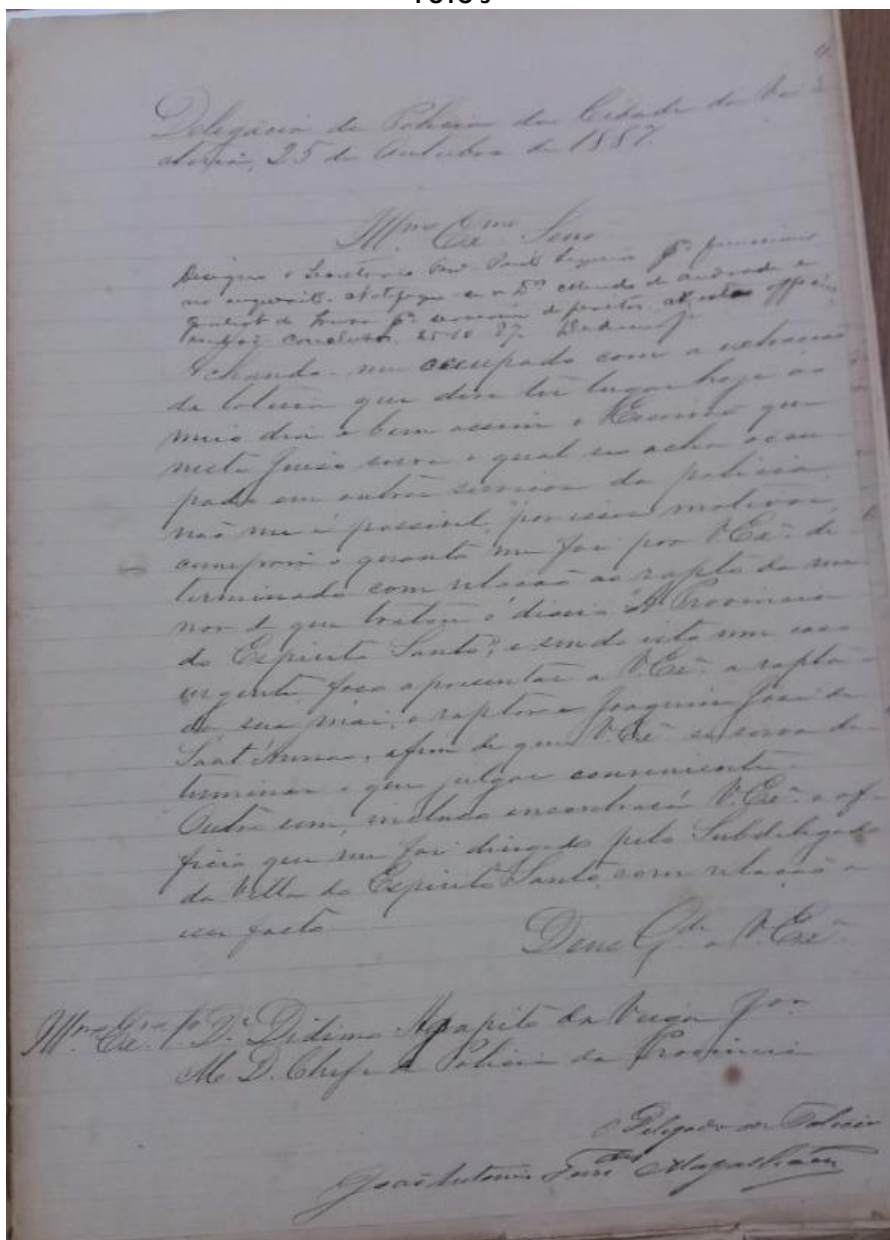 Delegacia de Policia da Cidade da Vi
ctoria, 25 de Outubro de 1887.
Illmo Exmo Senr
Designo o Secretario
no inquerito. Notifique-se o Dr de Andrade e
de Souza pa servirem de peritos
conclusos. 25-10-87.
Achando-me occupado com a extracção
da loteria que deve ter lugar hoje ao
meio dia e bem assim o Escrivão que
neste Juiso serve o qual se acha occu
pado em outros serviços da policia
não me é possivel, por esses motivos,
cumprir o quanto me foi por V. Exa de
terminado com relação ao rapto da me
nor de que tratou o diario "A Provincia
do Espirito Santo", e sendo isto um caso
urgente faço apresentar a V. Exa a rapta
da, sua mãi, o raptor e Joaquim José de
Sant'Anna, afim de que V. Exa se sirva de
terminar o que julgar conveniente.
Outro sim, incluso encontrará V. Exa o of
ficio que me foi dirigido pelo Subdelegado
da Villa do Espirito Santo com relação a
esse facto.
Deus Gde a V. Exa
Illmo Exmo Sr Dr Didimo Agapito da Veiga Jor
M. D. Chefe de Policia da Provincia
O Delegado de Policia
João Antonio Magalhães